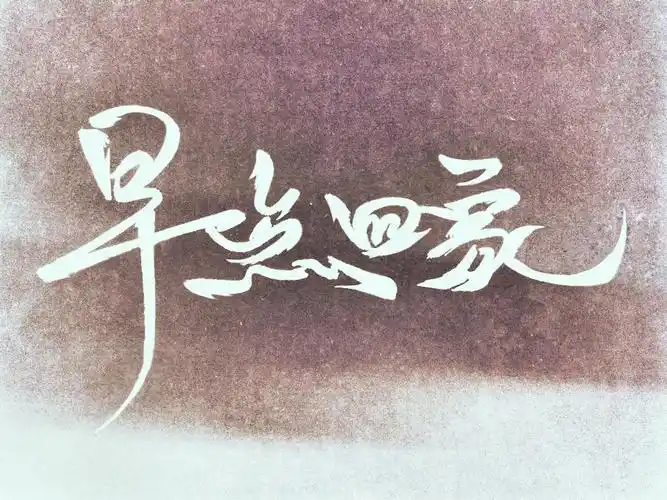 早点回家